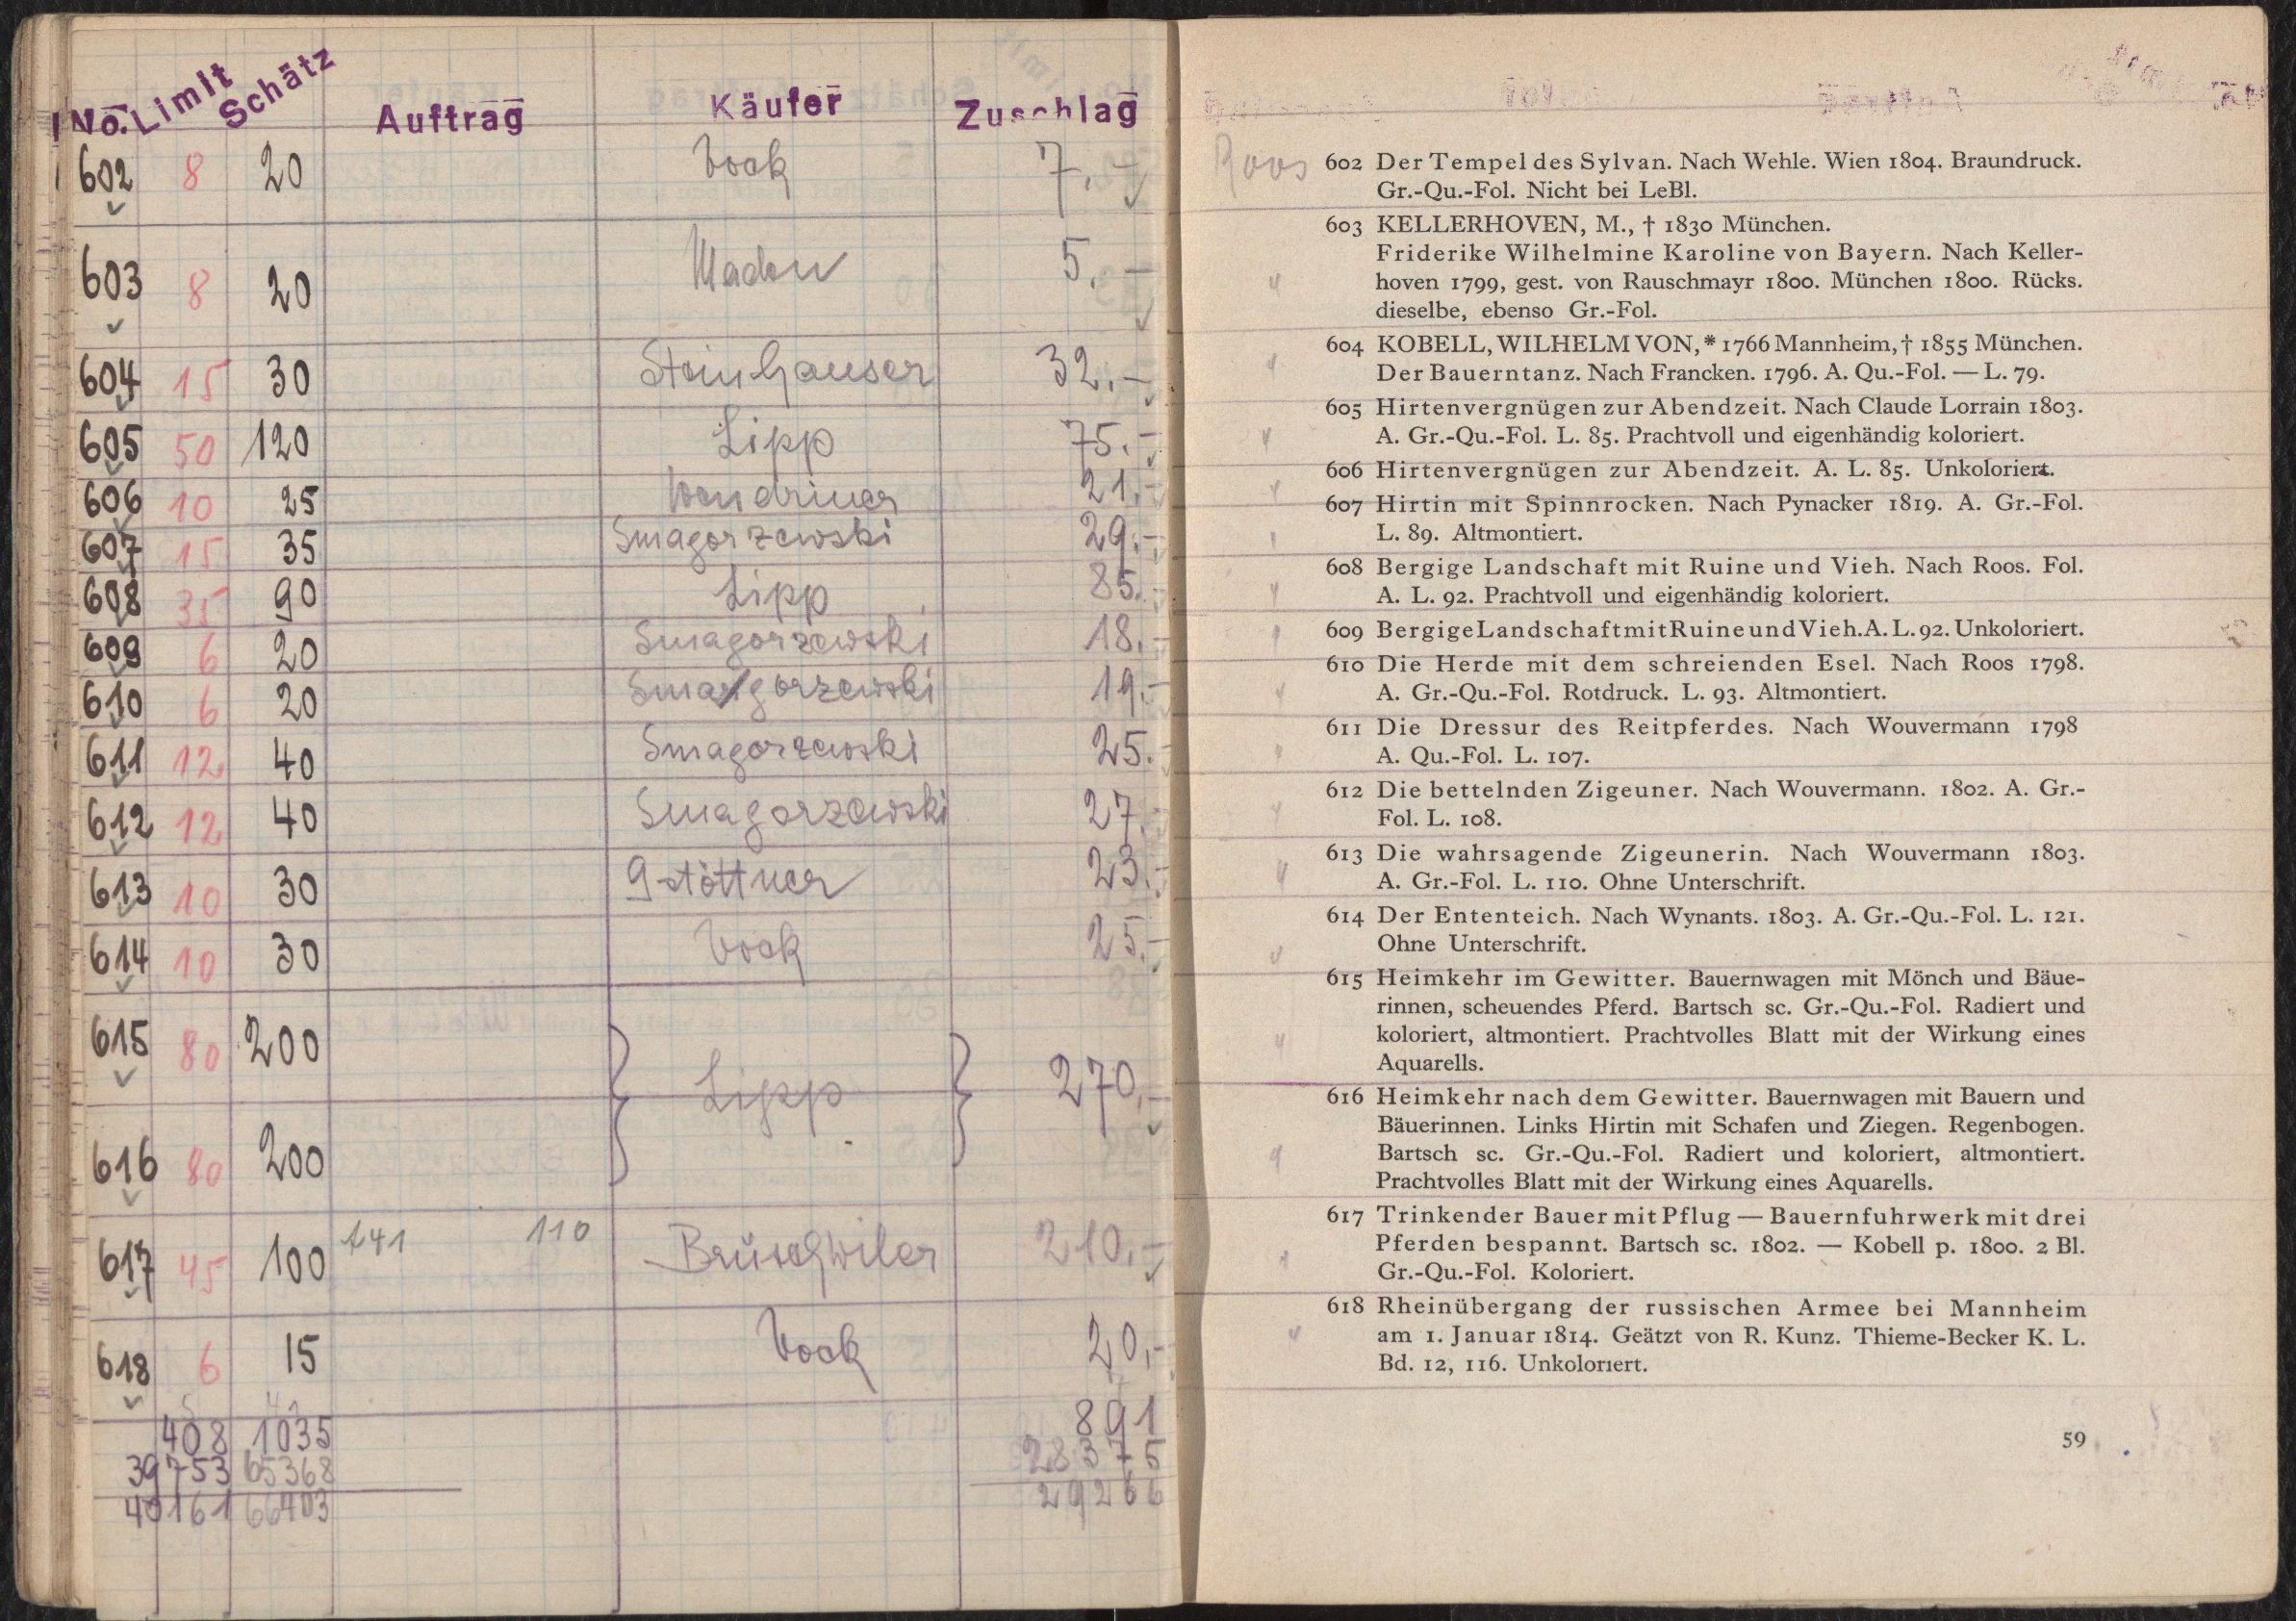 No. Limit Schätz Auftrag Käufer Zuschlag
602 8 20 Vock 7.-
603 8 20 5.-
604 15 30 Steinhauser 32.-
605 50 120 Lipp 75.-
606 10 25 Wendriner 21.-
607 15 35 Smagorzewski 29.-
608 35 90 Lipp 85.-
609 6 20 Smagorzewski 18.-
610 6 20 Smagorzewski 19.-
611 12 40 Smagorzewski 25.-
612 12 40 Smagorzewski 27.-
613 10 30 Gstöttner 23.-
614 10 30 Vock 25.-
615 80 200
Lipp 270,-
616 80 200
617 45 100 141 110 Brüschwiler 210.-
618 6 15 Vock 20,-
408 1035 891
39753 65368 28375
40161 66403 29266
Roos
602 Der Tempel des Sylvan. Nach Wehle. Wien 1804. Braundruck.
Gr.-Qu.-Fol. Nicht bei LeBl.
603 KELLERHOVEN, M., † 1830 München.
Friderike Wilhelmine Karoline von Bayern. Nach Keller-
hoven 1799, gest. von Rauschmayr 1800. München 1800. Rücks.
dieselbe, ebenso Gr.-Fol.
604 KOBELL, WILHELM VON, * 1766 Mannheim, † 1855 München.
Der Bauerntanz. Nach Francken. 1796. A. Qu.-Fol. — L. 79.
605 Hirtenvergnügen zur Abendzeit. Nach Claude Lorrain 1803.
A. Gr.-Qu.-Fol. L. 85. Prachtvoll und eigenhändig koloriert.
606 Hirtenvergnügen zur Abendzeit. A. L. 85. Unkoloriert.
607 Hirtin mit Spinnrocken. Nach Pynacker 1819. A. Gr.-Fol.
L. 89. Altmontiert.
608 Bergige Landschaft mit Ruine und Vieh. Nach Roos. Fol.
A. L. 92. Prachtvoll und eigenhändig koloriert.
609 Bergige Landschaft mit Ruine und Vieh. A. L. 92. Unkoloriert.
610 Die Herde mit dem schreienden Esel. Nach Roos 1798.
A. Gr.-Qu.-Fol. Rotdruck. L. 93. Altmontiert.
611 Die Dressur des Reitpferdes. Nach Wouvermann 1798
A. Qu.-Fol. L. 107.
612 Die bettelnden Zigeuner. Nach Wouvermann. 1802. A. Gr.-
Fol. L. 108.
613 Die wahrsagende Zigeunerin. Nach Wouvermann 1803.
A. Gr.-Fol. L. 110. Ohne Unterschrift.
614 Der Ententeich. Nach Wynants. 1803. A. Gr.-Qu.-Fol. L. 121.
Ohne Unterschrift.
615 Heimkehr im Gewitter. Bauernwagen mit Mönch und Bäue-
rinnen, scheuendes Pferd. Bartsch sc. Gr.-Qu.-Fol. Radiert und
koloriert, altmontiert. Prachtvolles Blatt mit der Wirkung eines
Aquarells.
616 Heimkehr nach dem Gewitter. Bauernwagen mit Bauern und
Bäuerinnen. Links Hirtin mit Schafen und Ziegen. Regenbogen.
Bartsch sc. Gr.-Qu.-Fol. Radiert und koloriert, altmontiert.
Prachtvolles Blatt mit der Wirkung eines Aquarells.
617 Trinkender Bauer mit Pflug — Bauernfuhrwerk mit drei
Pferden bespannt. Bartsch sc. 1802. — Kobell p. 1800. 2 Bl.
Gr.-Qu.-Fol. Koloriert.
618 Rheinübergang der russischen Armee bei Mannheim
am 1. Januar 1814. Geätzt von R. Kunz. Thieme-Becker K. L.
Bd. 12, 116. Unkoloriert.
59